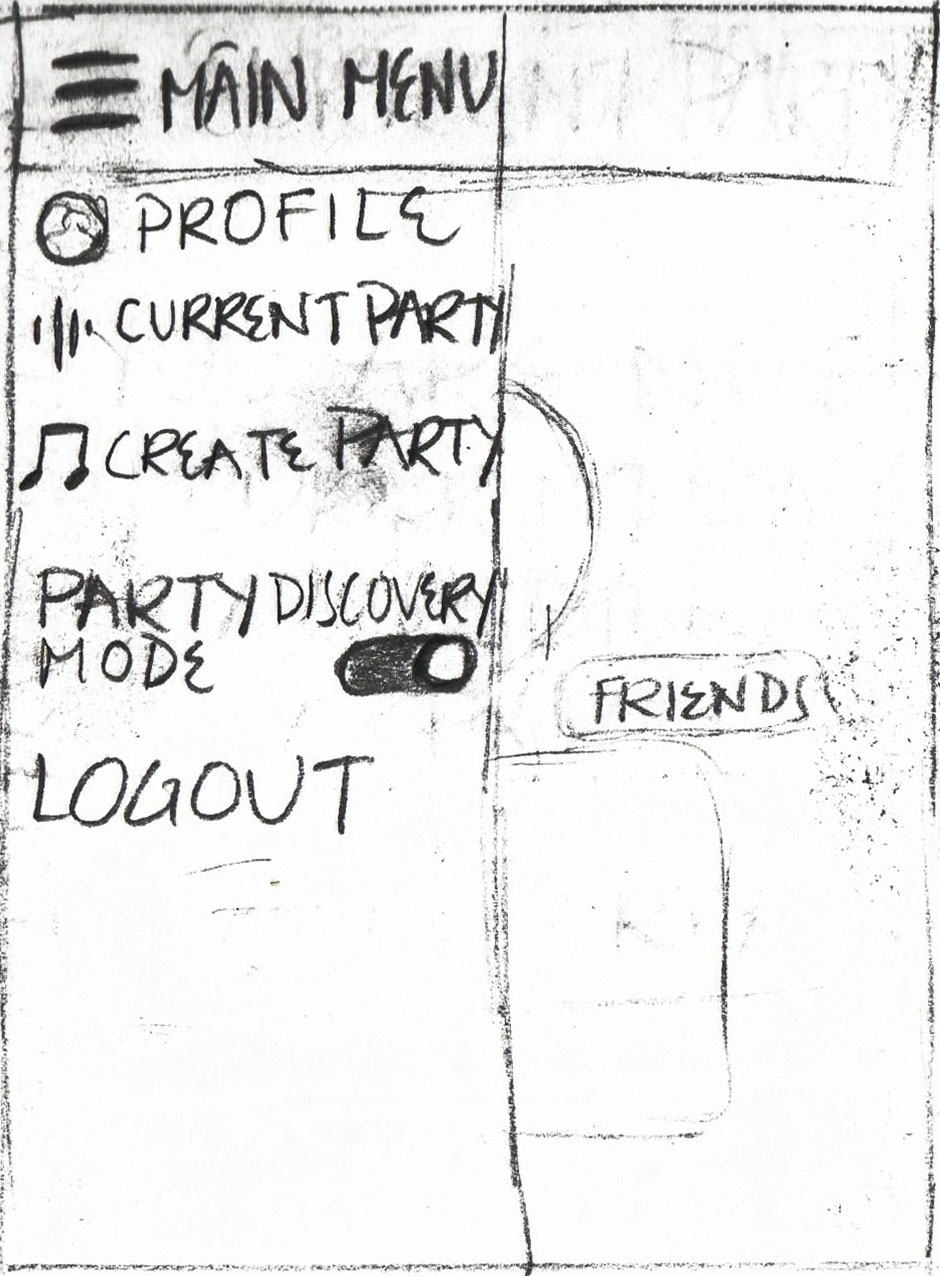 MAIN MENU
PROFILE
CURRENT PARTY
CREATE PARTY
PARTY DISCOVERY
MODE
LOGOUT
FRIENDS